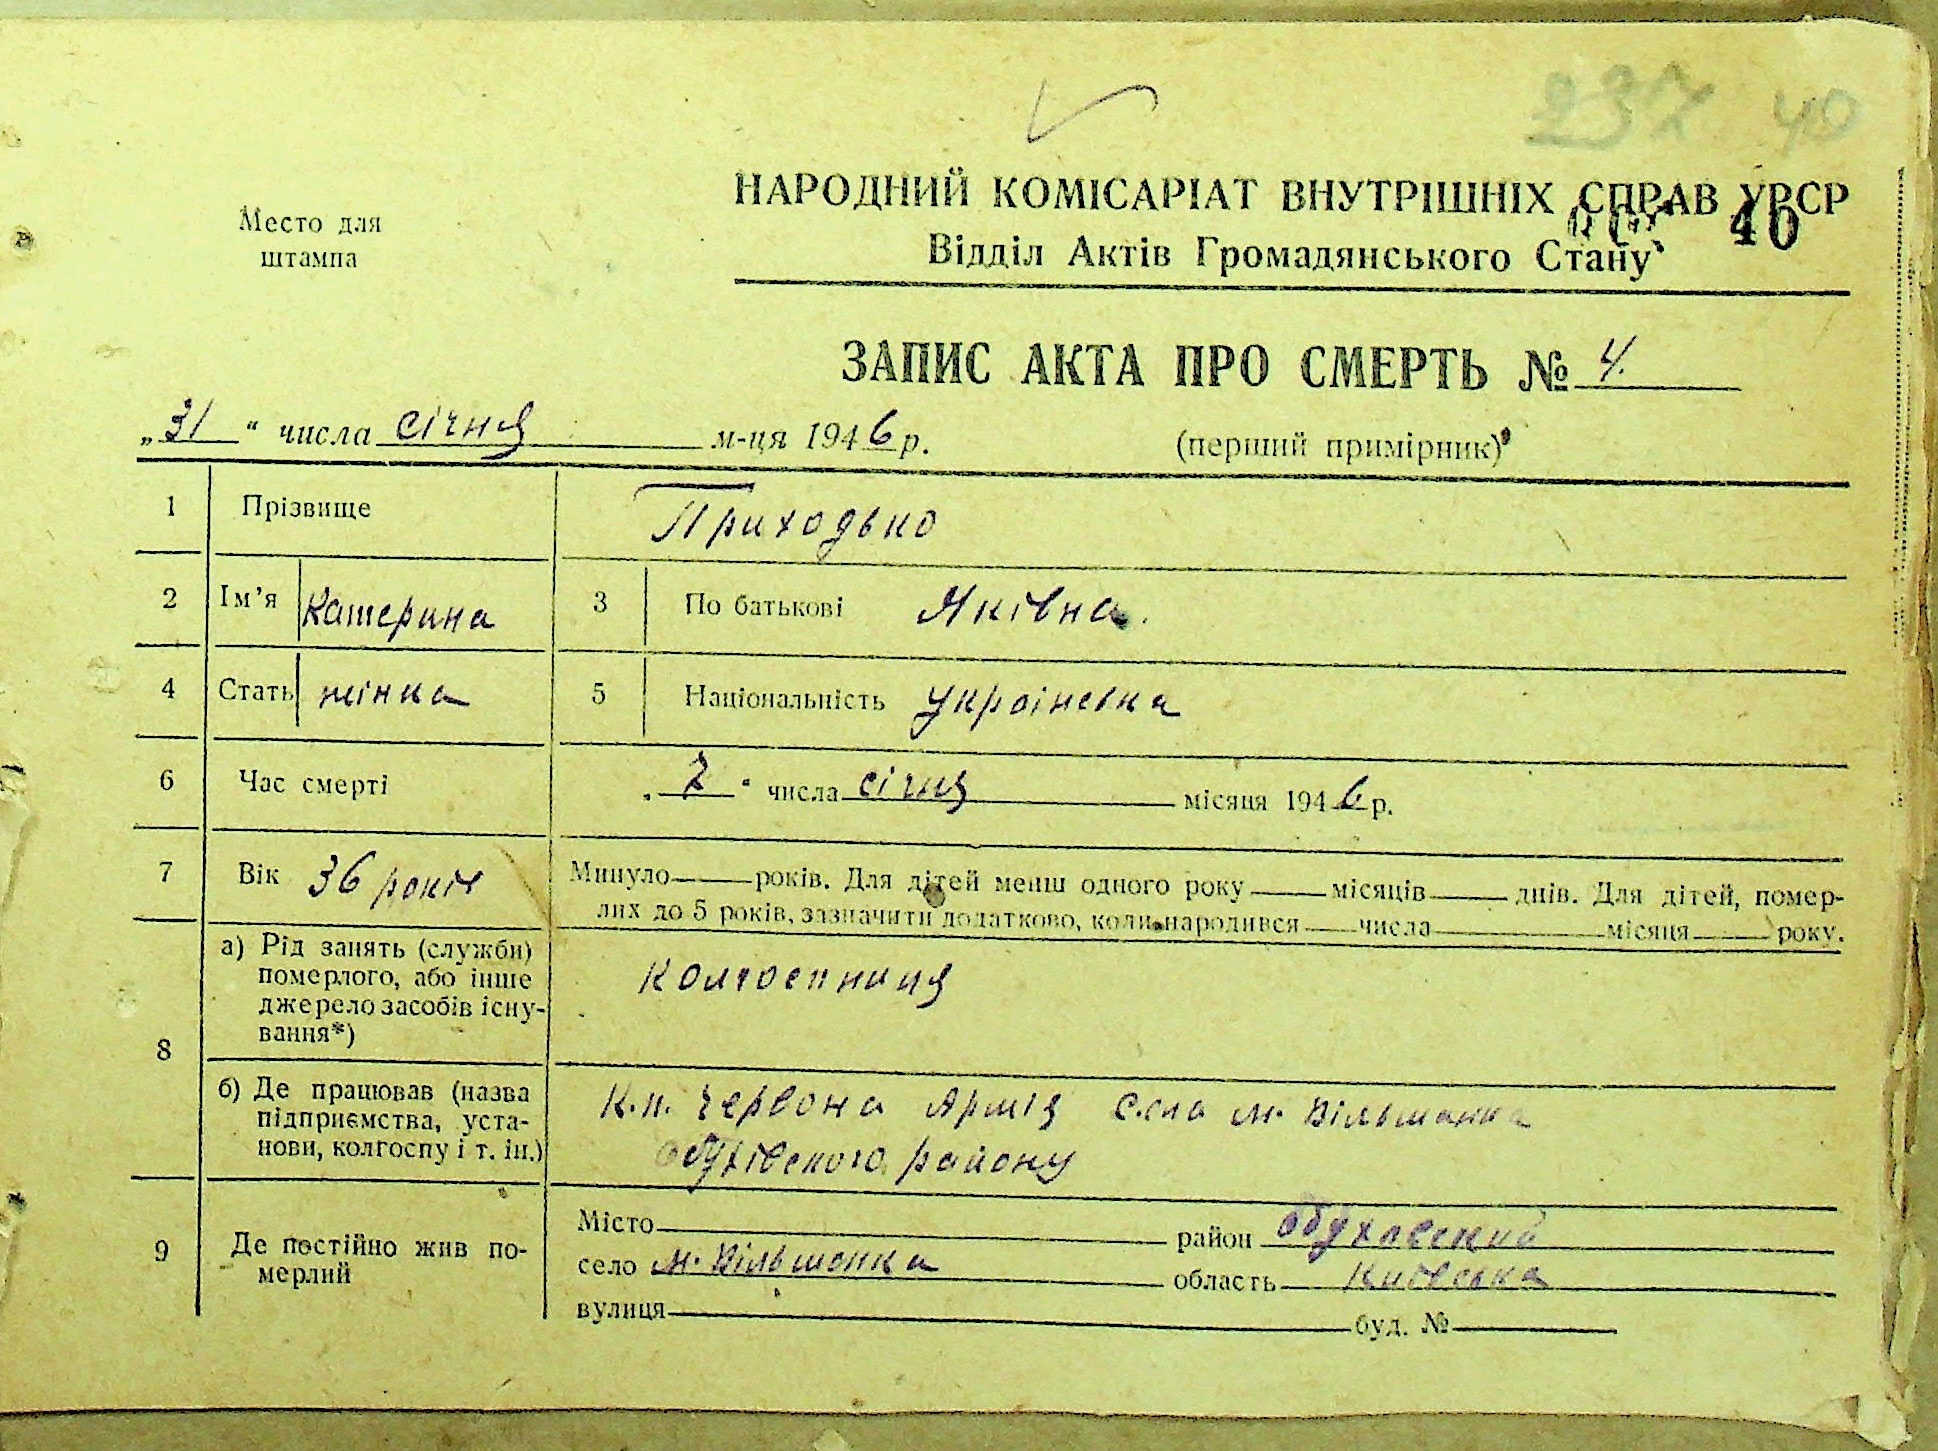 237 40
НАРОДНИЙ КОМІСАРІАТ ВНУТРІШНІХ СПРАВ УРСР
40
Место для
штампа
Відділ Актів Громадянського Стану
ЗАПИС АКТА ПРО СМЕРТЬ № 4.
„31“ числа січня м-ця 1946 р.
(перший примірник)
1 Прізвище Приходько
2 Ім'я Катерина 3 По батькові Яківна.
4 Стать жінка 5 Національність українська
6 Час смерті „2“ числа січня місяця 1946 р.
7 Вік 36 років Минуло років. Для дітей менш одного року місяців днів. Для дітей, помер-
лих до 5 років, зазначити додатково, коли народився числа місяця року.
8 а) Рід занять (службн)
померлого, або інше
джерело засобів існу-
вання*)
Колгоспниця
б) Де працював (назва
підприємства, уста-
нови, колгоспу і т. ін.)
К.п. Червона Армія села м. Вільшанка
Обухівского району
9 Де постійно жив по-
мерлий
Місто район Обуховский
село м. Вільшанка область Київська
вулиця буд. №